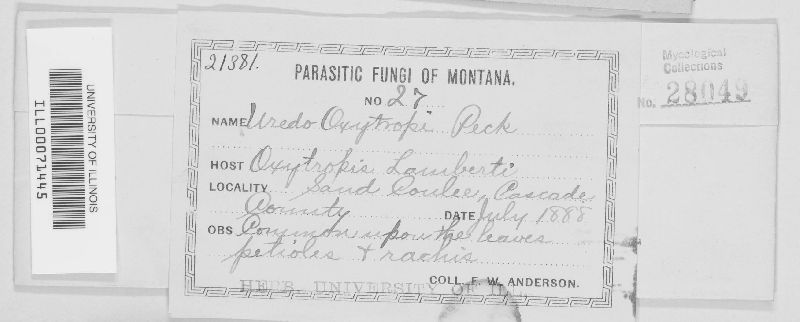 UNIVERSITY OF ILLINOIS
ILL00071445
21381.
PARASITIC FUNGI OF MONTANA.
NO 27
NAME Uredo Oxytropi Peck
HOST Oxytropis Lamberti
LOCALITY Sand Coulee, Cascade
County DATE July 1888
OBS Common upon the leaves
petioles + rachis
COLL. F. W. ANDERSON.
HERB. UNIVERSITY OF
Mycological
Collections
No. 28049